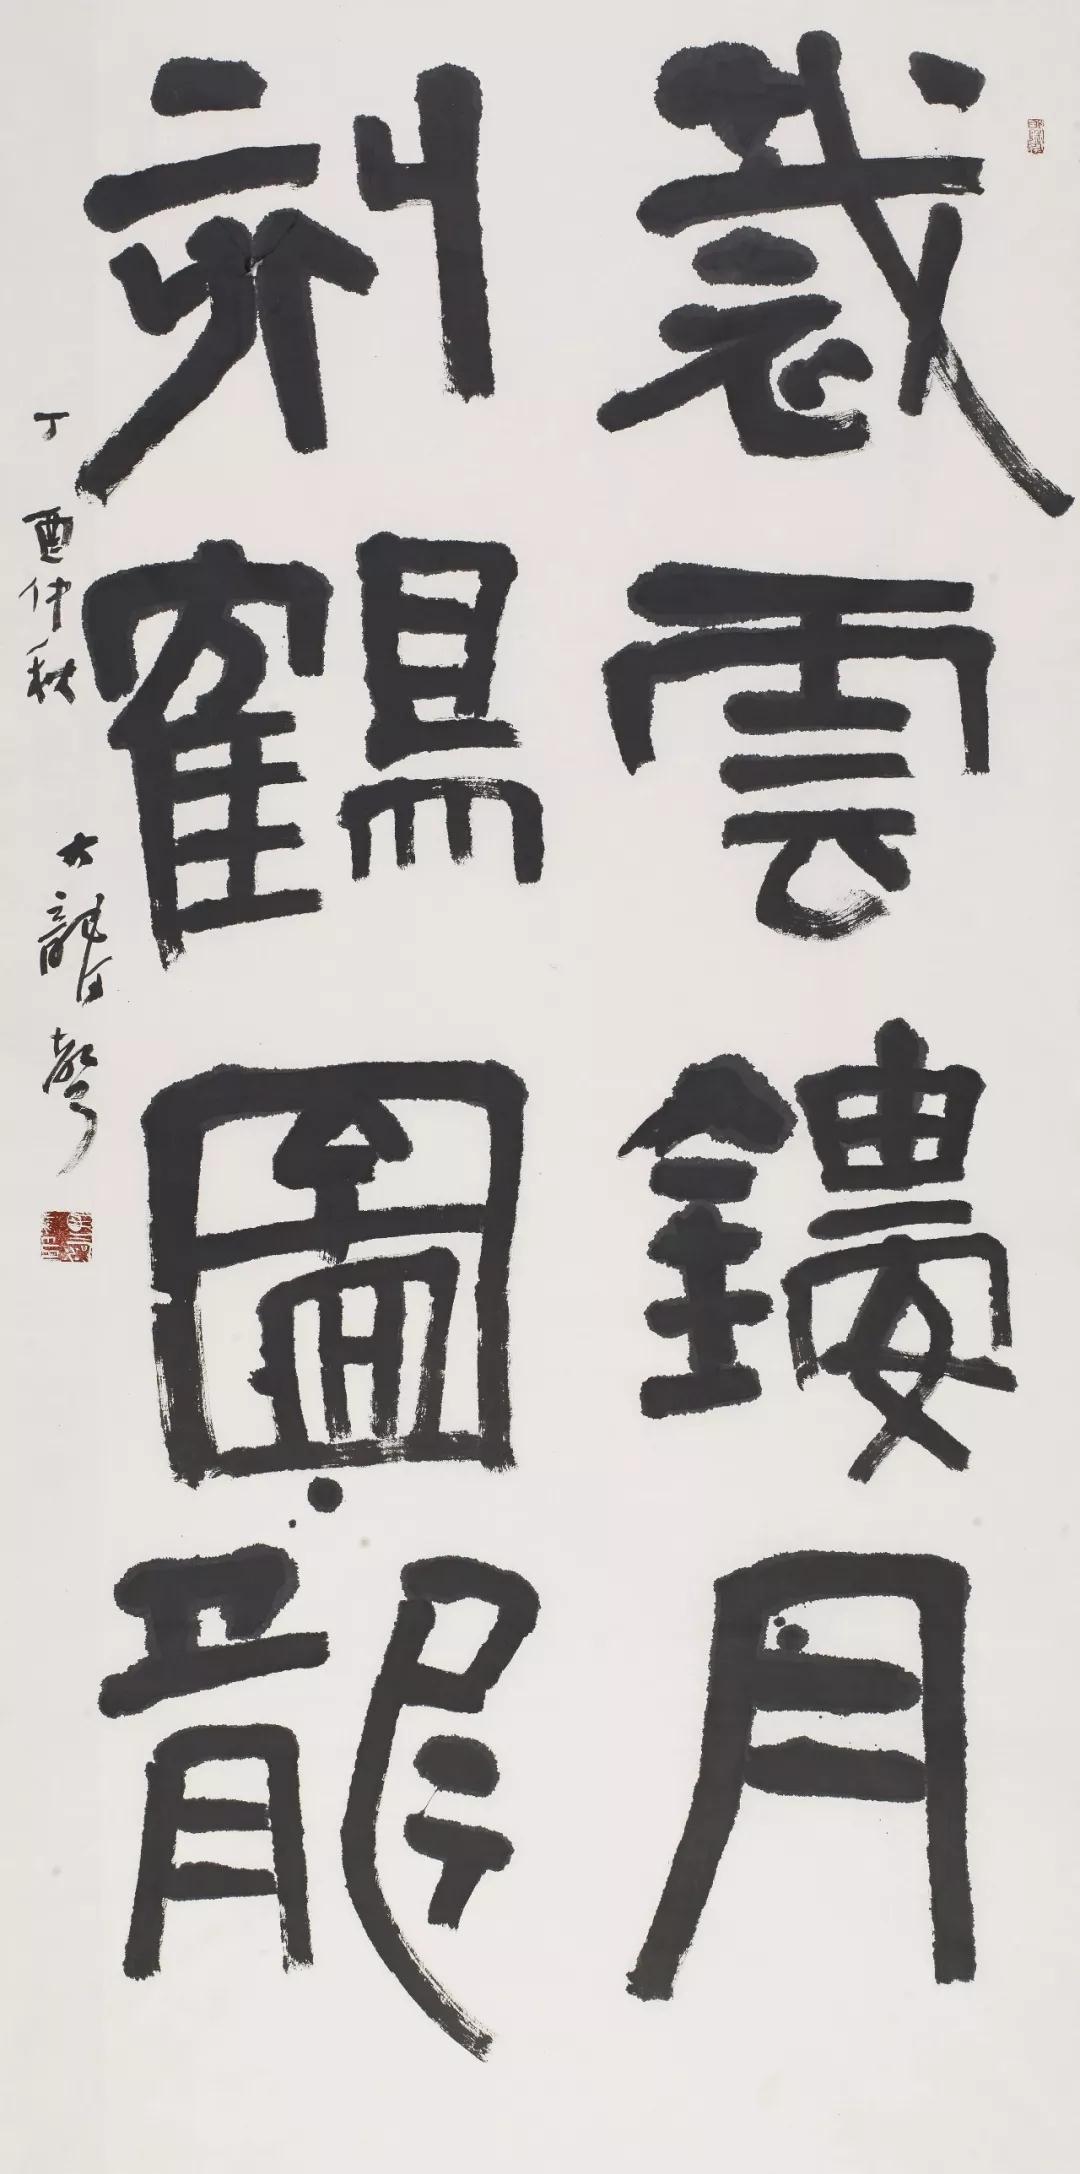 裁雲鏤月
刻鶴圖龍
丁酉仲秋
大龍